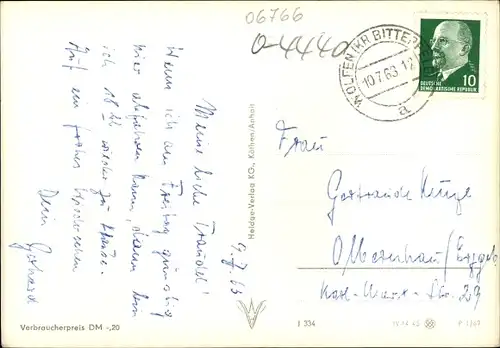 06766
0-4440
WOLFEN (KR. BITTERF
10.7.63.12
a
10
DEUTSCHE
DEMOKRATISCHE REPUBLIK
9.7.63
Meine liebe Traudel!
Wenn ich am Freitag günstig
hier abfahren kann, dann bin
ich 18 Uhr wieder zu Hause.
Auf ein frohes Wiedersehen
Dein Gerhard
Heldge-Verlag KG., Köthen/Anhalt
Frau
Gertraude Kunze
Olbernhau/Erzgeb
Karl-Marx-Str. 29
Verbraucherpreis DM -,20
I 334
P 1/62